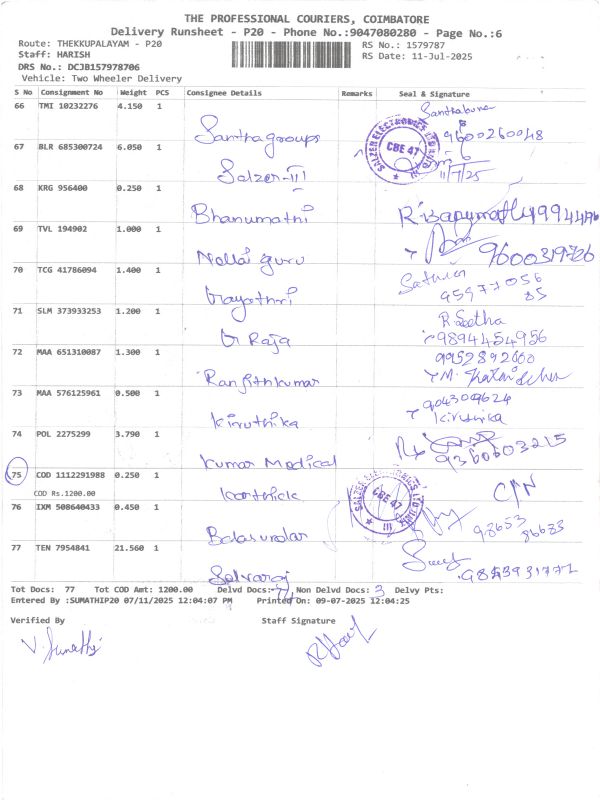 THE PROFESSIONAL COURIERS, COIMBATORE
Delivery Runsheet - P20 - Phone No.:9047080280 - Page No.:6
Route: THEKKUPALAYAM - P20 RS No.: 1579787
Staff: HARISH RS Date: 11-Jul-2025
DRS No.: DCJB157978706
Vehicle: Two Wheeler Delivery
S No Consignment No Weight PCS Consignee Details Remarks Seal & Signature
66 TMI 10232276 4.150 1
Santha groups 9600260048
67 BLR 685300724 6.050 1
SALZER ELECTRONICS LTD UNIT CBE 47 III
Salzer-III 11/7/25
68 KRG 956400 0.250 1
Bhanumathi
69 TVL 194902 1.000 1
Nellai guru 9600319726
70 TCG 41786094 1.400 1
Gayathri 95977 056 85
71 SLM 373933253 1.200 1 R. Seetha
G Raja 9894454956
72 MAA 651310087 1.300 1 9952892660
Ranjithkumar
73 MAA 576125961 0.500 1 904304624
Kiruthika Kiruthika
74 POL 2275299 3.790 1
Kumar Medical 9360603215
75 COD 1112291988 0.250 1
COD Rs.1200.00 Karthick
SALZER ELECTRONICS LTD UNIT CBE 47 III
76 IXM 508640433 0.450 1
98653 86683
77 TEN 7954841 21.560 1
Selvaraj
Tot Docs: 77 Tot COD Amt: 1200.00 Delvd Docs: Non Delvd Docs: 3 Delvy Pts:
Entered By :SUMATHIP20 07/11/2025 12:04:07 PM Printed On: 09-07-2025 12:04:25
Verified By Staff Signature
V. Sumathi